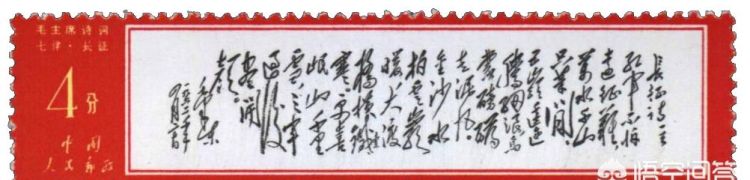 毛主席诗词
七律·长征
4分
中国
人民邮政
长征诗一首
红军不怕
远征难
万水千山
只等闲
五岭逶迤
腾细浪乌
蒙磅礴
走泥丸
金沙水
拍云崖
暖大渡
桥横铁索
寒更喜
岷山千里
雪三军
过后
尽开
颜
毛泽东
悟空问答